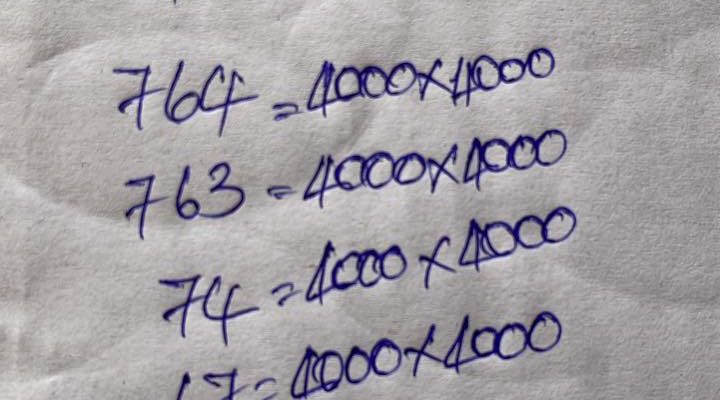 764 = 4000×4000
763 = 4000×4000
74 = 4000×4000
17 = 4000×4000